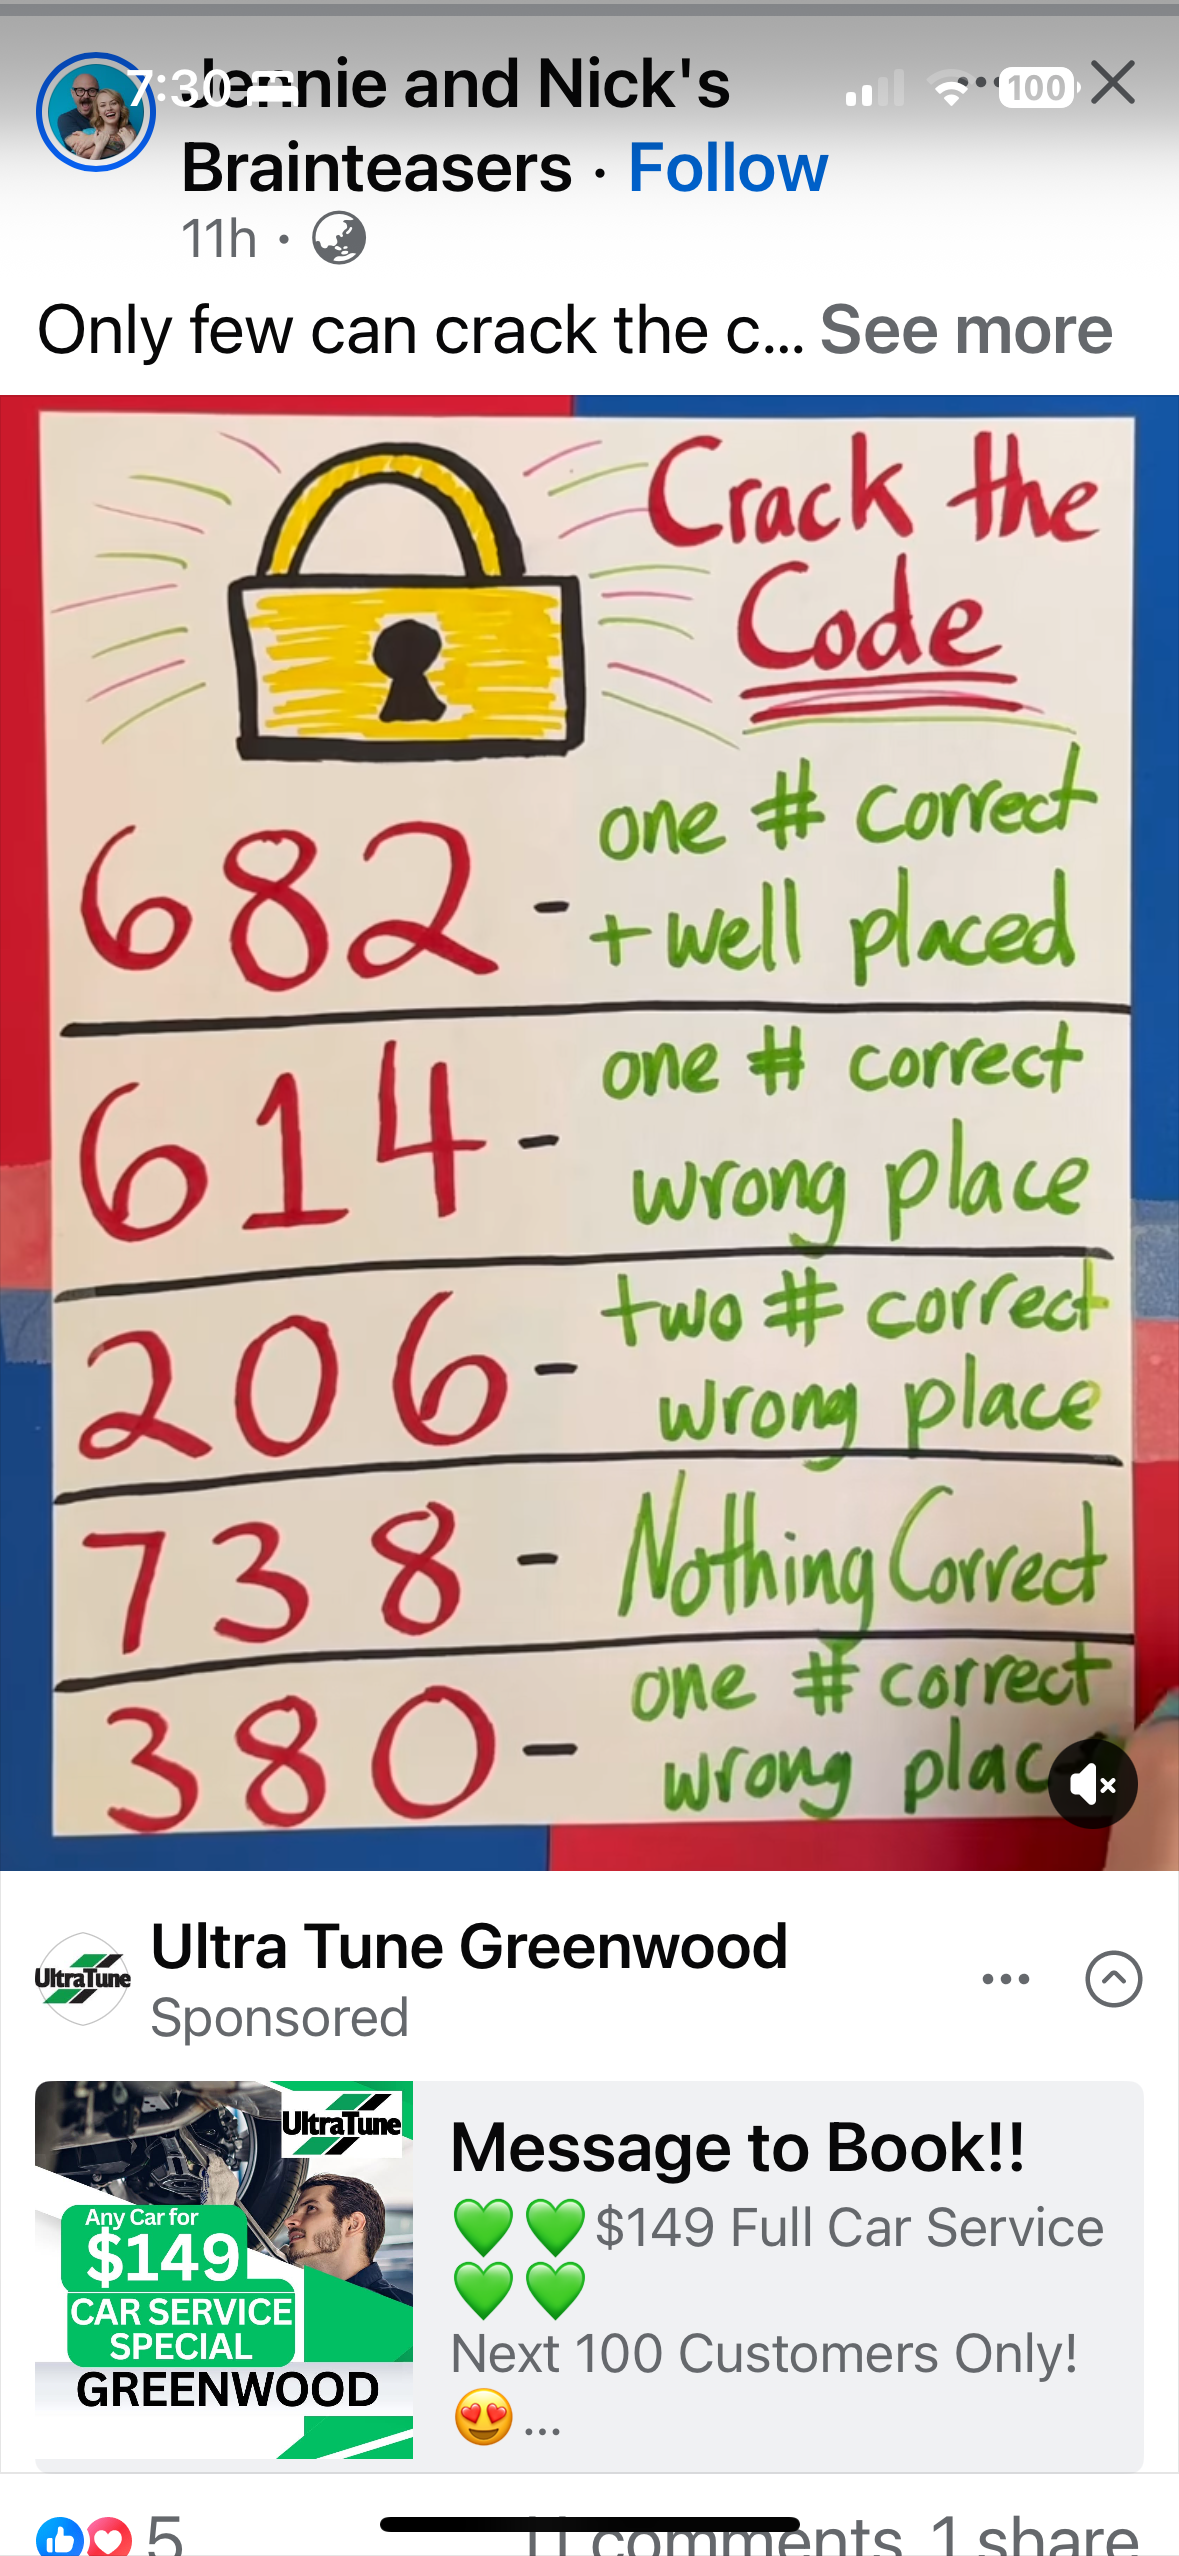 7:30
100
Jennie and Nick's
Brainteasers · Follow
11h ·
Only few can crack the c... See more
Crack the
Code
682 - one # correct
+ well placed
614 - one # correct
wrong place
206 - two # correct
wrong place
738 - Nothing Correct
380 - one # correct
wrong plac
UltraTune
Ultra Tune Greenwood
Sponsored
UltraTune
Any Car for
$149
CAR SERVICE
SPECIAL
GREENWOOD
Message to Book!!
💚💚$149 Full Car Service
💚💚
Next 100 Customers Only!
😍...
5
11 comments 1 share